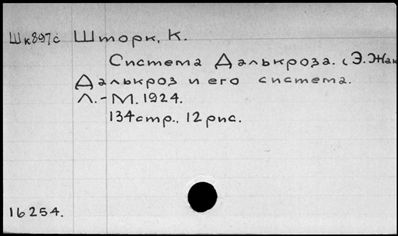 Шк897с Шторк, К.
Система Далькроза. (Э. Жак
Далькроз и его система.
Л.-М. 1924.
134стр., 12 рис.
16254.